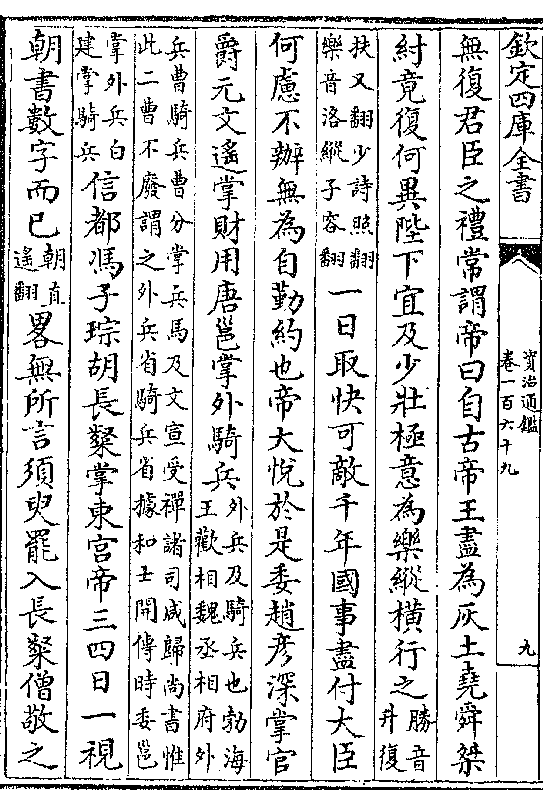 欽定四庫全書
資治通鑑
卷一百六十九
九
無復君臣之禮常謂帝曰自古帝王盡為灰土堯舜桀
紂竟復何異陛下宜及少壯極意為樂縱橫行之勝音升復
扶又翻少詩照翻樂音洛縱子容翻一日取快可敵千年國事盡付大臣
何慮不辦無為自勤約也帝大悅於是委趙彥深掌官
爵元文遙掌財用唐邕掌外騎兵外兵及騎兵也勃海王歡相魏丞相府外
兵曹騎兵曹分掌兵馬及文宣受禪諸司咸歸尚書惟此二曹不廢謂之外兵省騎兵省據和士開傳時委邕
掌外兵白建掌騎兵信都馮子琮胡長粲掌東宮帝三四日一視
朝書數字而已朝直遙翻畧無所言須臾罷入長粲僧敬之